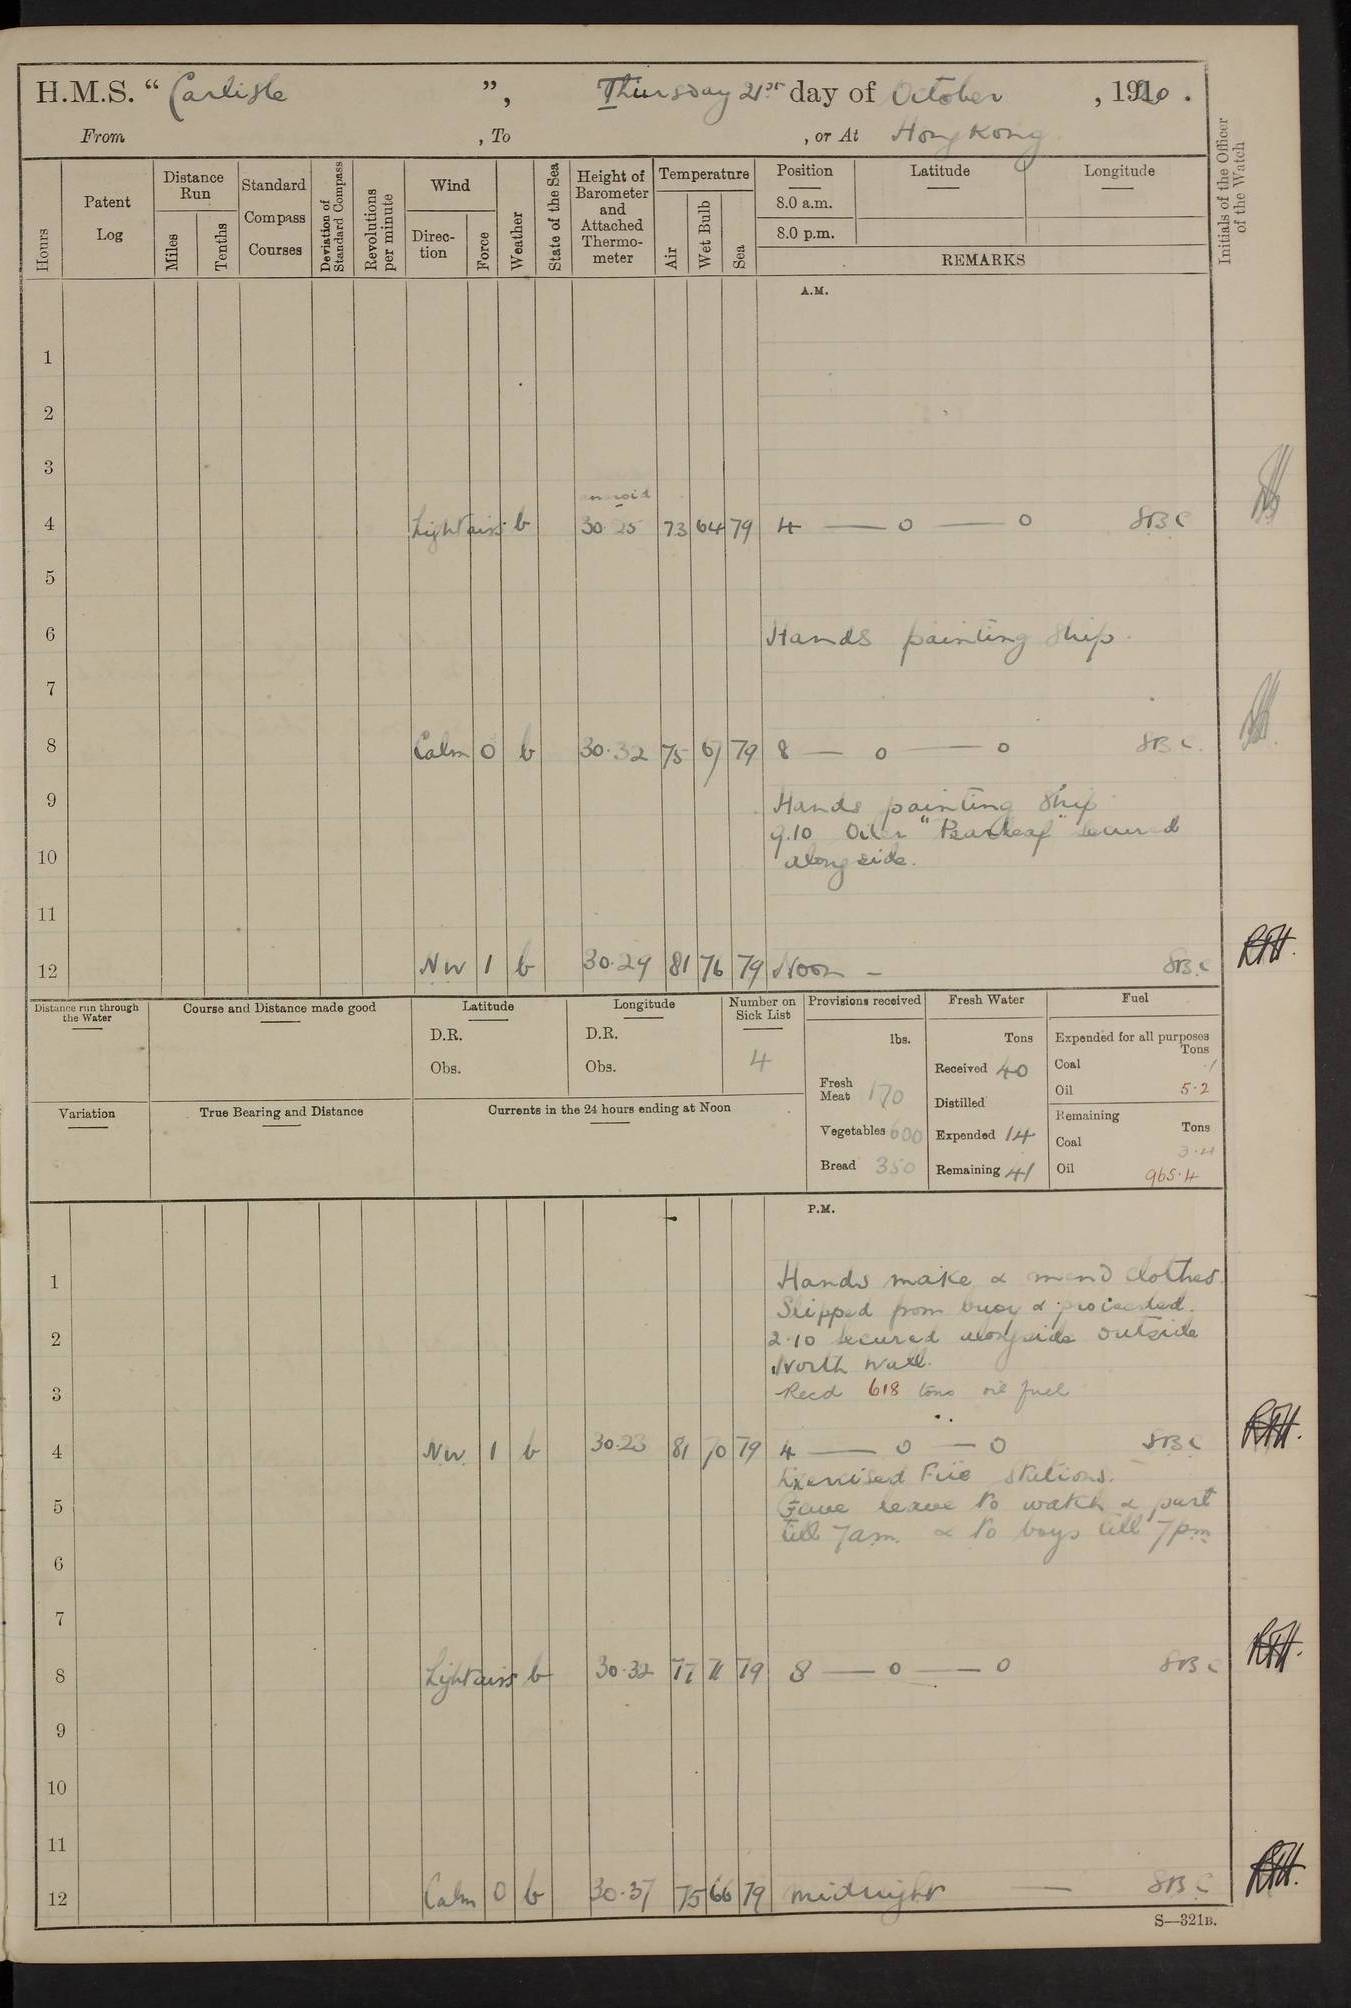 H.M.S. “ Carlisle ”, Thursday 21st day of October , 1920 .
From , To , or At Hong Kong
Hours
Patent Log
Distance Run
Miles
Tenths
Standard Compass Courses
Deviation of Standard Compass
Revolutions per minute
Wind
Direction
Force
Weather
State of the Sea
Height of Barometer and Attached Thermometer
Temperature
Air
Wet Bulb
Sea
Position
8.0 a.m.
8.0 p.m.
Latitude
Longitude
REMARKS
Initials of the Officer of the Watch
A.M.
1
2
3
4 Light airs b 30.25 73 64 79 4 — o — o SBC
5
6 Hands painting ship.
7
8 Calm 0 b 30.32 75 67 79 8 — o — o SBC.
9 Hands painting ship
9.10 Oiler "Pearleaf" secured
10 alongside.
11
12 NW 1 b 30.29 81 76 79 Noon - SBC
Distance run through the Water
Course and Distance made good
Latitude
D.R.
Obs.
Longitude
D.R.
Obs.
Number on Sick List
4
Provisions received
lbs.
Fresh Meat 170
Vegetables 600
Bread 350
Fresh Water
Tons
Received 40
Distilled
Expended 14
Remaining 41
Fuel
Expended for all purposes
Tons
Coal .1
Oil 5.2
Remaining
Tons
Coal
Oil 965.4
Variation
True Bearing and Distance
Currents in the 24 hours ending at Noon
P.M.
1 Hands make & mend clothes.
Slipped from buoy & proceeded.
2 2.10 secured alongside outside
North Wall.
3 Recd 618 tons oil fuel
4 NW. 1 b 30.23 81 70 79 4 — o — o SBC
Exercised Fire Stations.
5 Gave leave to watch & part
till 7am. & to boys till 7pm
6
7
8 Light airs b 30.32 77 71 79 8 — o — o SBC
9
10
11
12 Calm 0 b 30.37 75 66 79 midnight — SBC
S—321B.